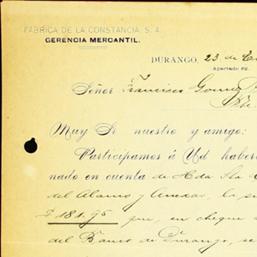 FÁBRICA DE LA CONSTANCIA, S. A.
GERENCIA MERCANTIL.
DURANGO, 23 de
APARTADO
Señor Francisco Gomez
Muy Sr nuestro y amigo:
Participamos á Ud haber
nado en cuenta de Hda
del Alamo y la
$ 181.95 en cheque
del Banco de Durango, se